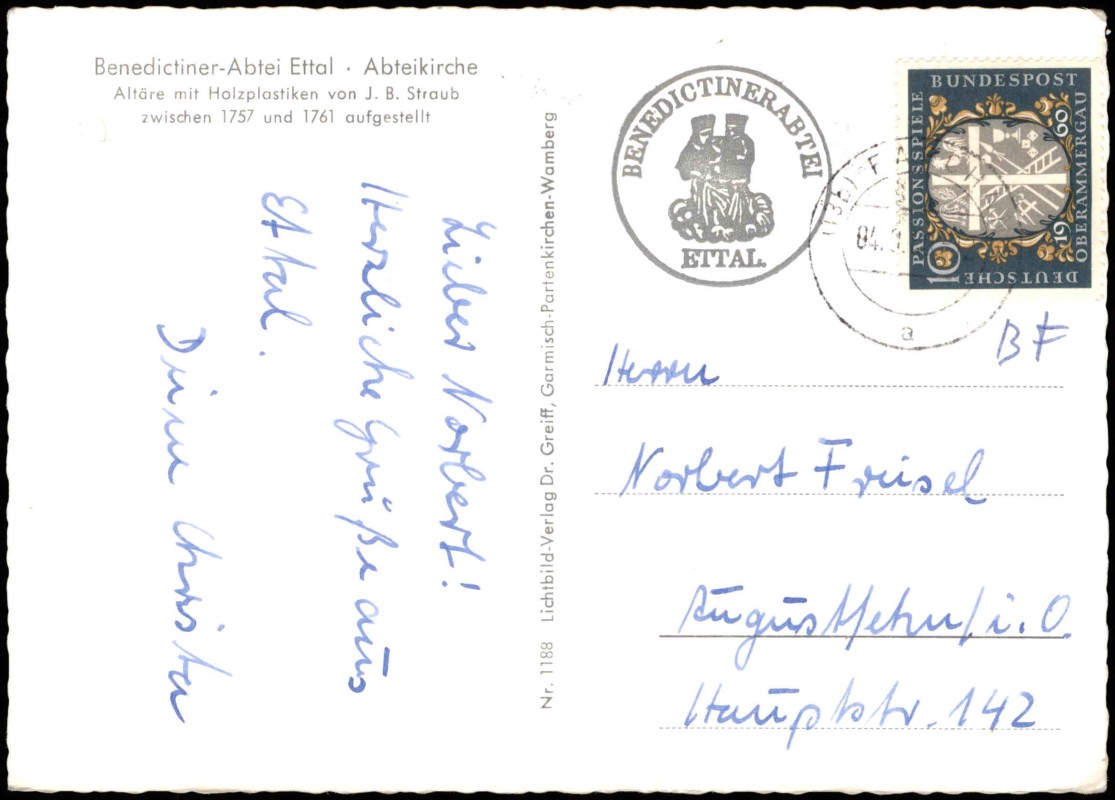 Benedictiner-Abtei Ettal · Abteikirche
Altäre mit Holzplastiken von J. B. Straub
zwischen 1757 und 1761 aufgestellt
Lieber Norbert!
Herzliche Grüße aus
Ettal.
Deine Christa
Nr. 1188 Lichtbild-Verlag Dr. Greiff, Garmisch-Partenkirchen-Wamberg
BENEDICTINERABTEI
ETTAL.
04.
a
DEUTSCHE
BUNDESPOST
PASSIONSSPIELE
OBERAMMERGAU
1960
10
BF
Herrn
Norbert Freisel
Augustfehn/i.O.
Hauptstr. 142